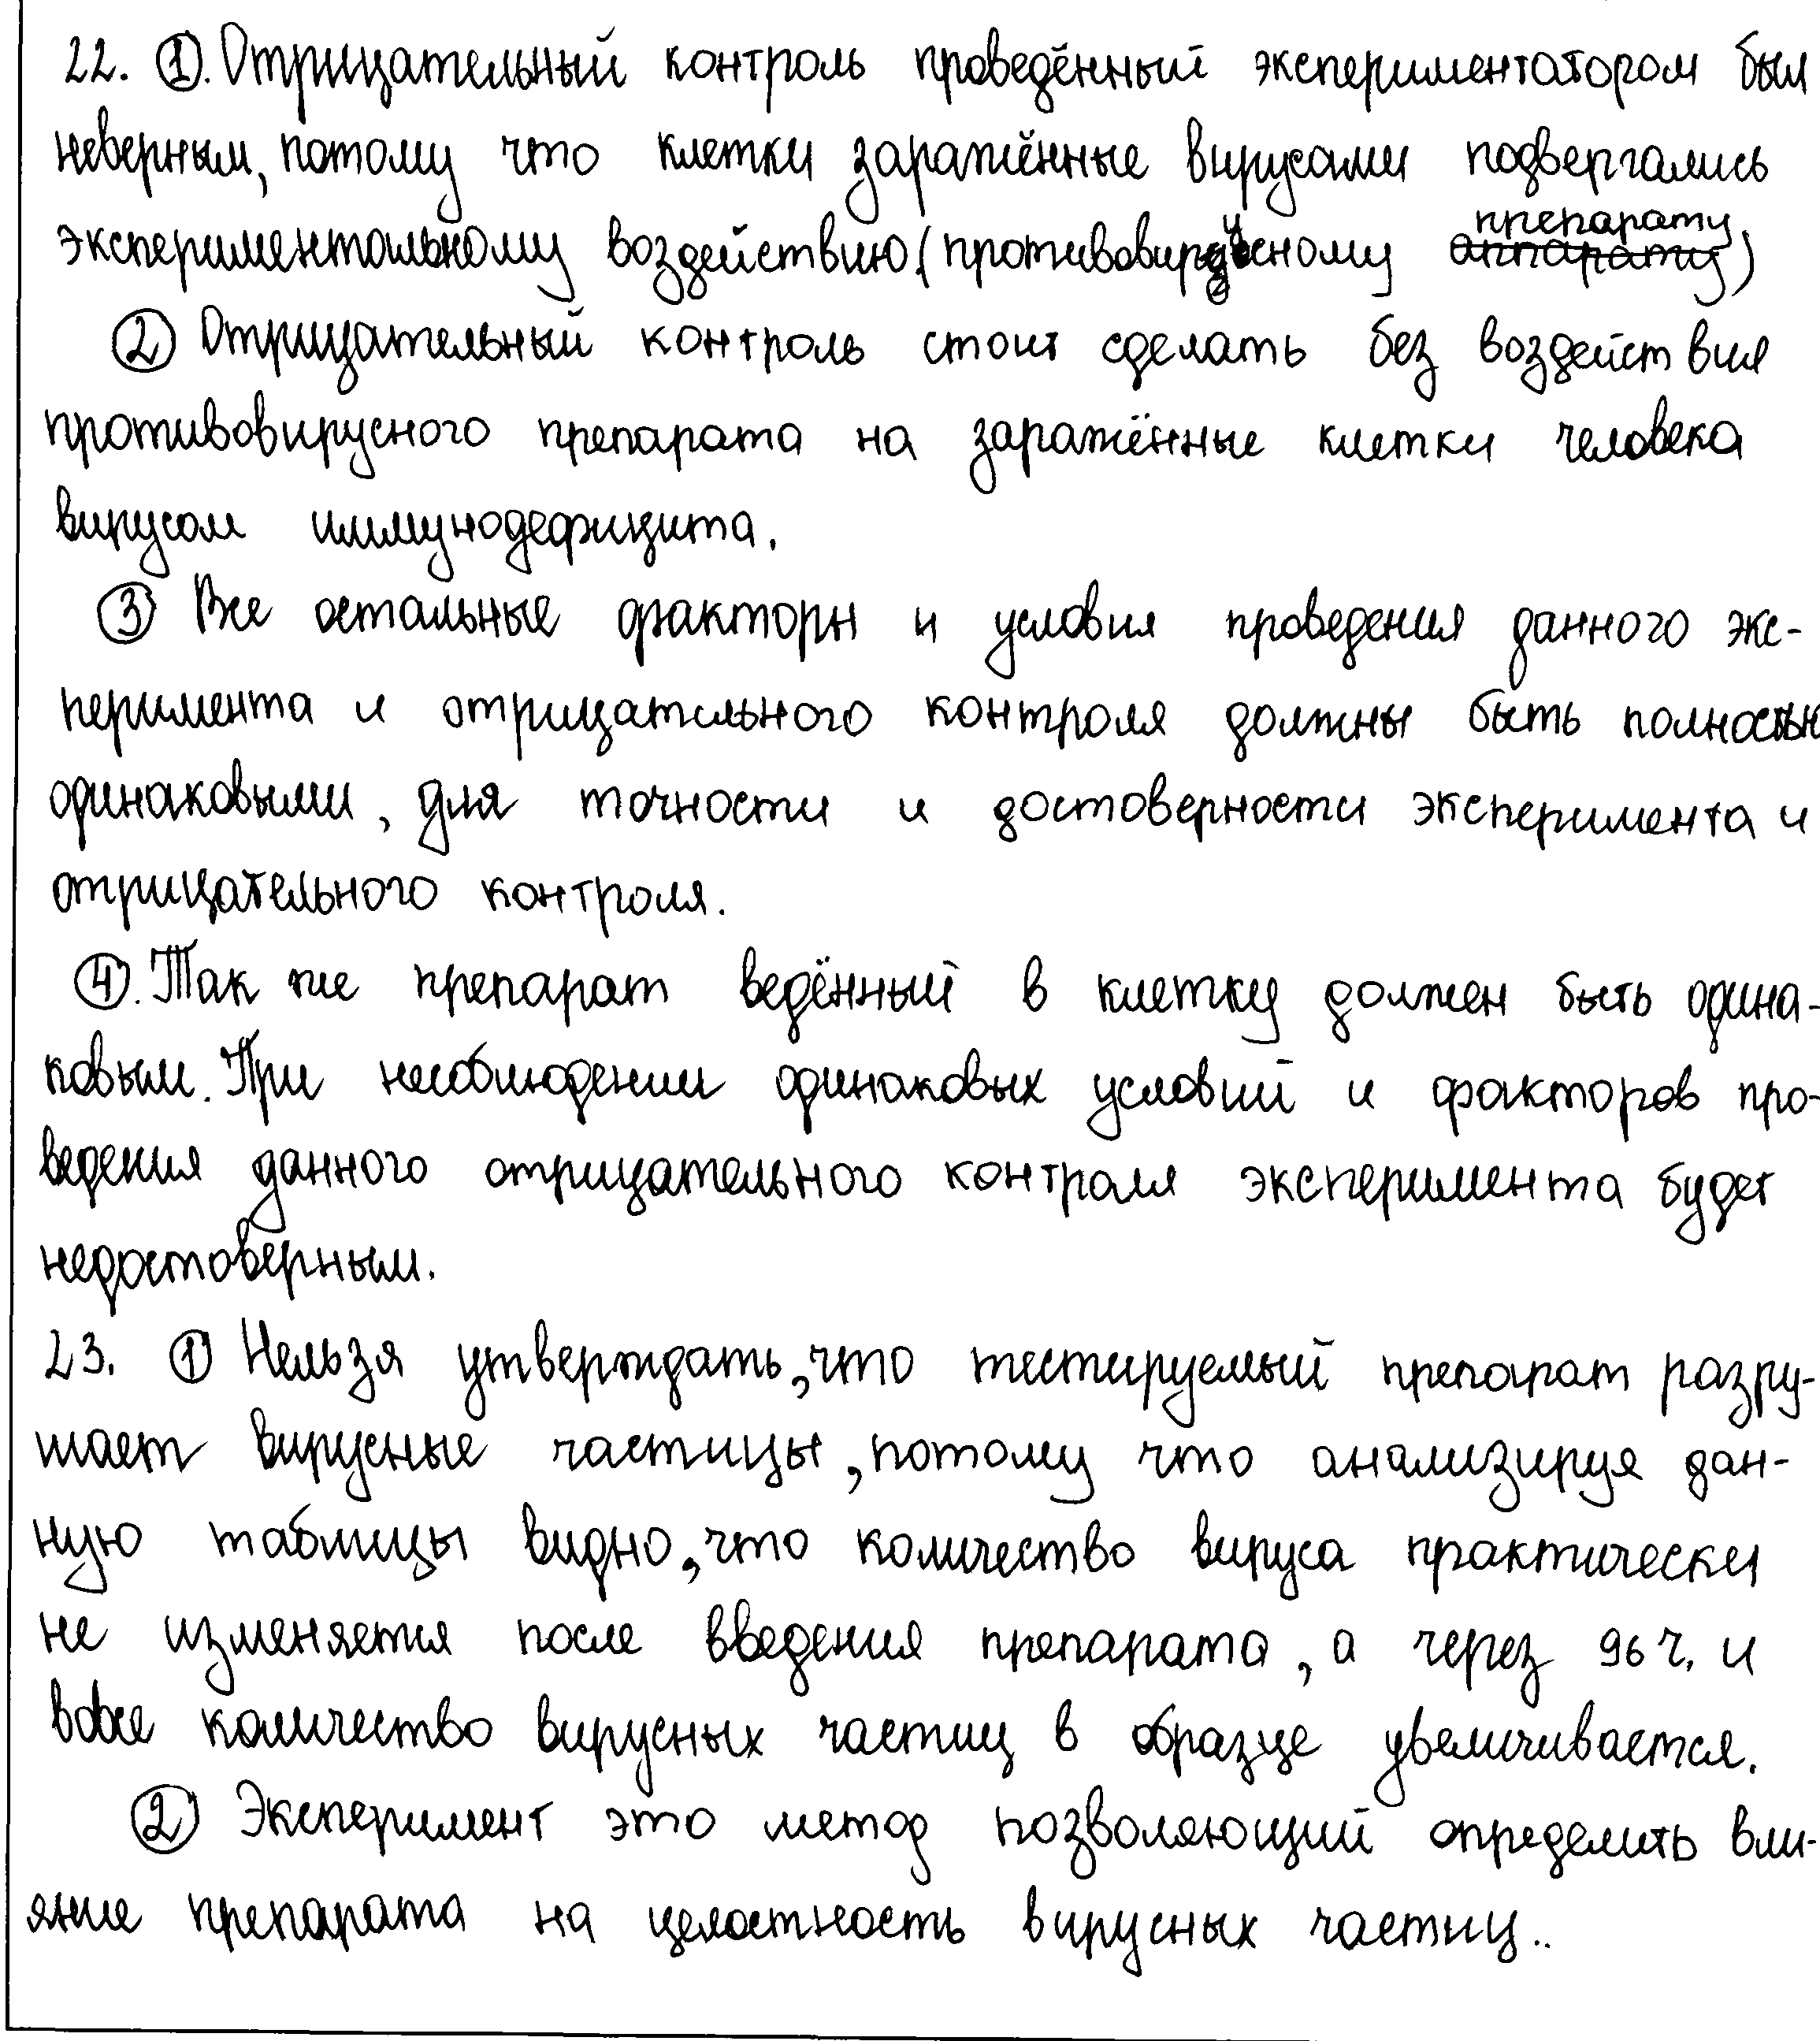 22. ①. Отрицательный контроль проведённый экспериментатором был
неверным, потому что клетки заражённые вирусами подвергались
экспериментальному воздействию (противовирусному препарату)
② Отрицательный контроль стоит сделать без воздействия
противовирусного препарата на заражённые клетки человека
вирусом иммунодефицита.
③ Все остальные факторы и условия проведения данного экс-
перимента и отрицательного контроля должны быть полностью
одинаковыми, для точности и достоверности эксперимента и
отрицательного контроля.
④. Так же препарат ведённый в клетку должен быть одина-
ковым. При несоблюдении одинаковых условий и факторов про-
ведения данного отрицательного контроля эксперимента будет
недостоверным.
23. ① Нельзя утверждать, что тестируемый препарат разру-
шает вирусные частицы, потому что анализируя дан-
ную таблицы видно, что количество вируса практически
не изменяется после введения препарата, а через 96 ч. и
вовсе количество вирусных частиц в образце увеличивается.
② Эксперимент это метод позволяющий определить вли-
яние препарата на целостность вирусных частиц..